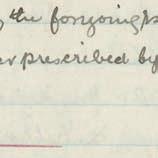 the foregoing is
prescribed by